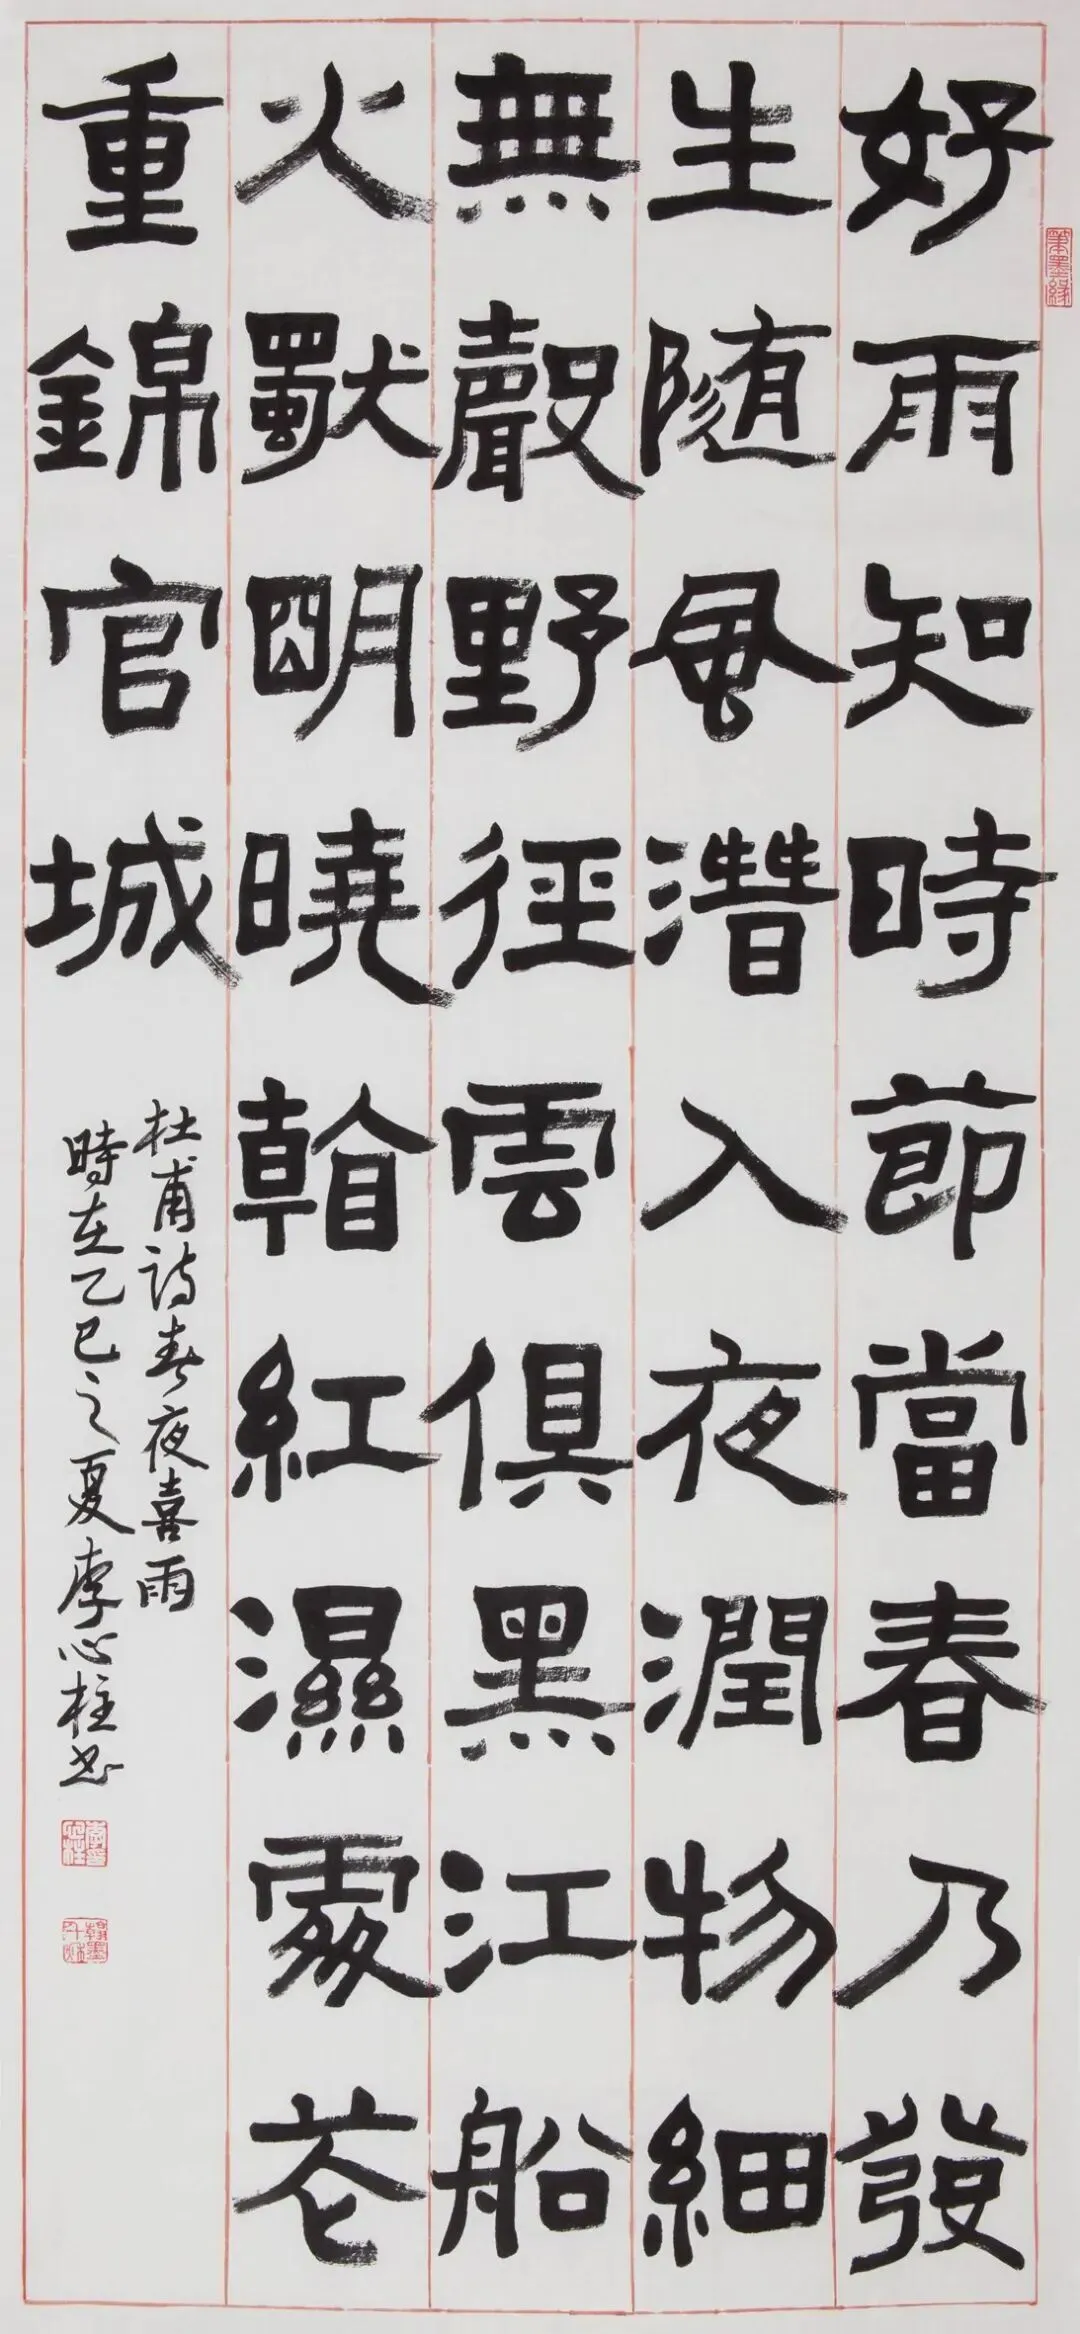 好雨知時節當春乃發
生随風潛入夜潤物細
無聲野徑雲俱黑江船
火獨明曉看紅濕處花
重錦官城
杜甫詩春夜喜雨
時在乙巳之夏李心柱書
筆墨緣
李印心柱